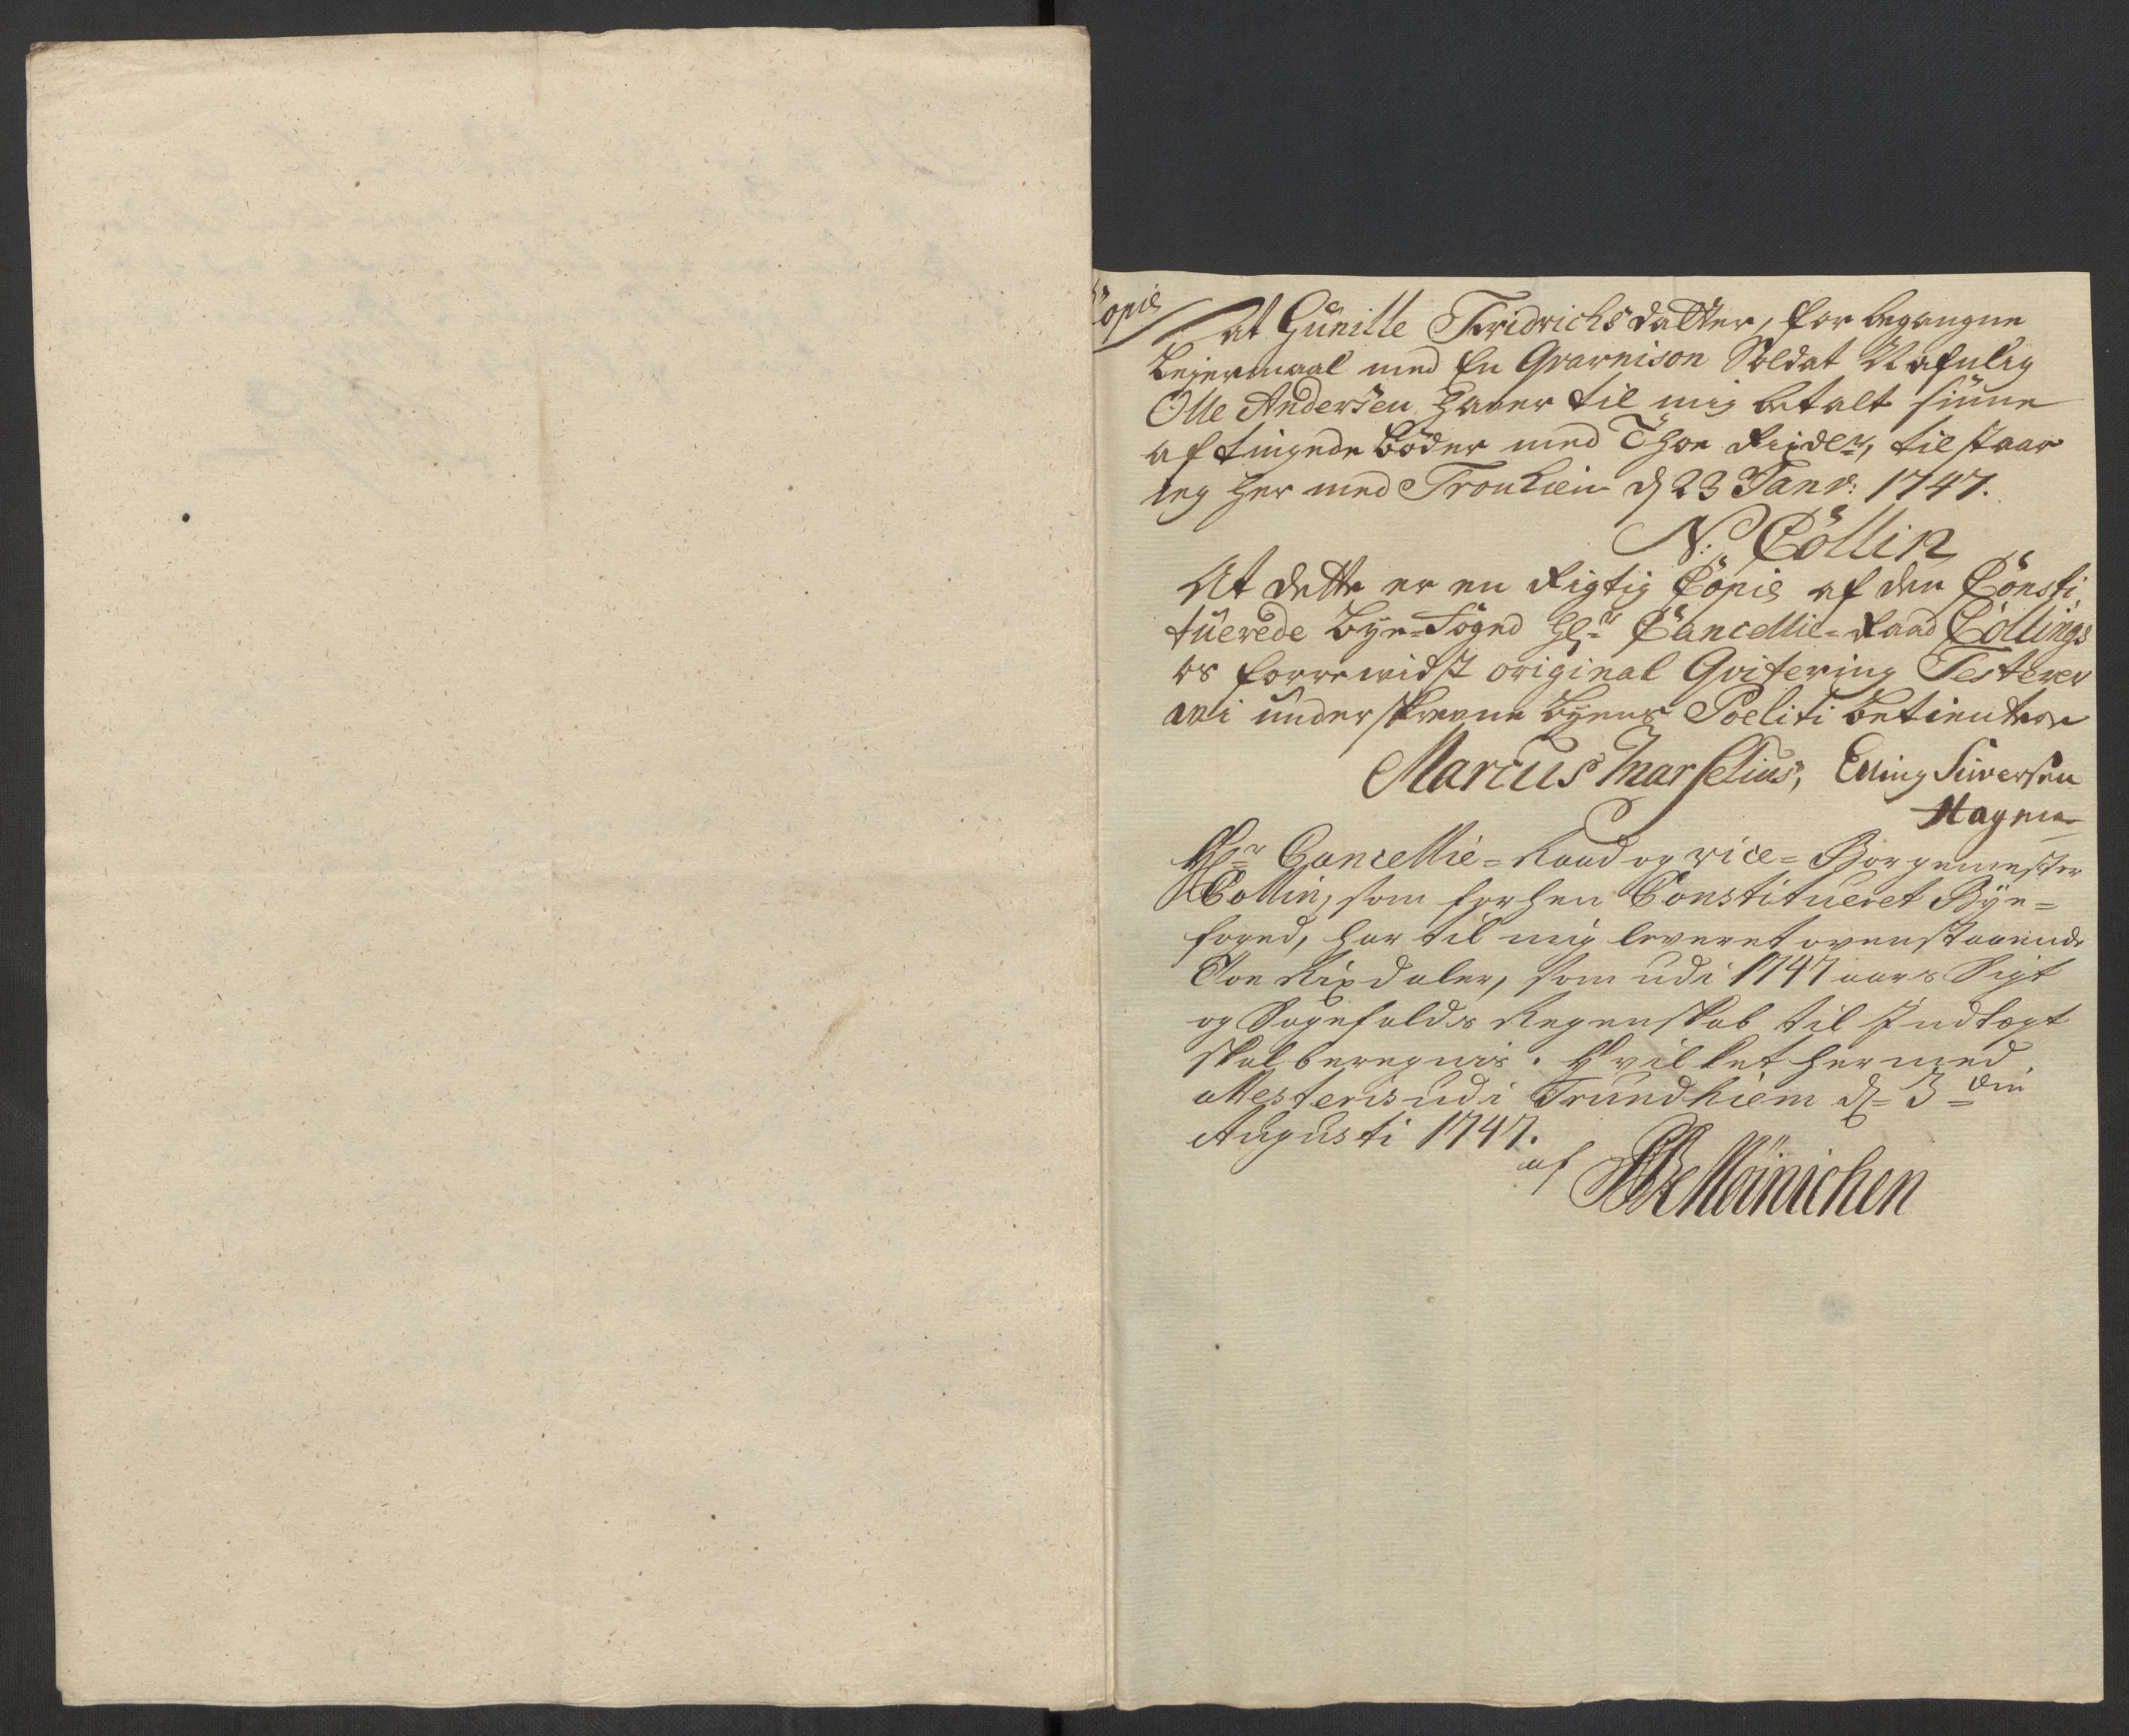 Copie
At Gunille Fridrichsdatter, for begangne
Leiermaal med En Gvarnison Soldat Nafnlig
Olle Andersen haver til mig betalt sinne
aftingede Böder med Thoe Rixdlr, tilstaar
ieg her med Tronhiem d 23 Janv: 1747.
N: Cöllin
At dette er en Rigtig Copie af den Consti
tuerede Bye-Foged Hr Cancellie-Raad Collings
os forrewidst original Qvitering Testerer
wi underskrevne Byens Poeliti Betientere
Marcus Marselius, Elling Siwersen
Hagen
Hr Cancellie=Raad og vice=Borgemester
Collin, som forhen Constitueret Bye=
foged, har til mig leveret ovenstaaende
Toe Rixdaler, som udi 1747 aars Sigt
og Sagefalds Regenskab til Indtægt
skal beregnis. Hvilket hermed
attesteris udi Trundhiem d= 3 die
Augusti 1747.
af Möinichen